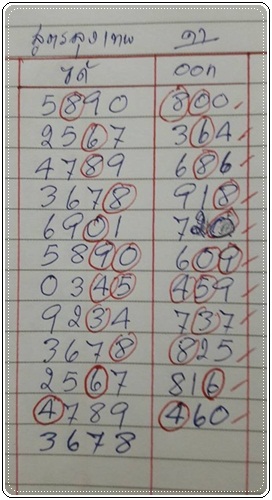 สูตรลุงเทพ ดา
ได้ ออก
5890 800
2567 364
4789 686
3678 918
6901 720
5890 609
0345 459
9234 737
3678 825
2567 816
4789 460
3678